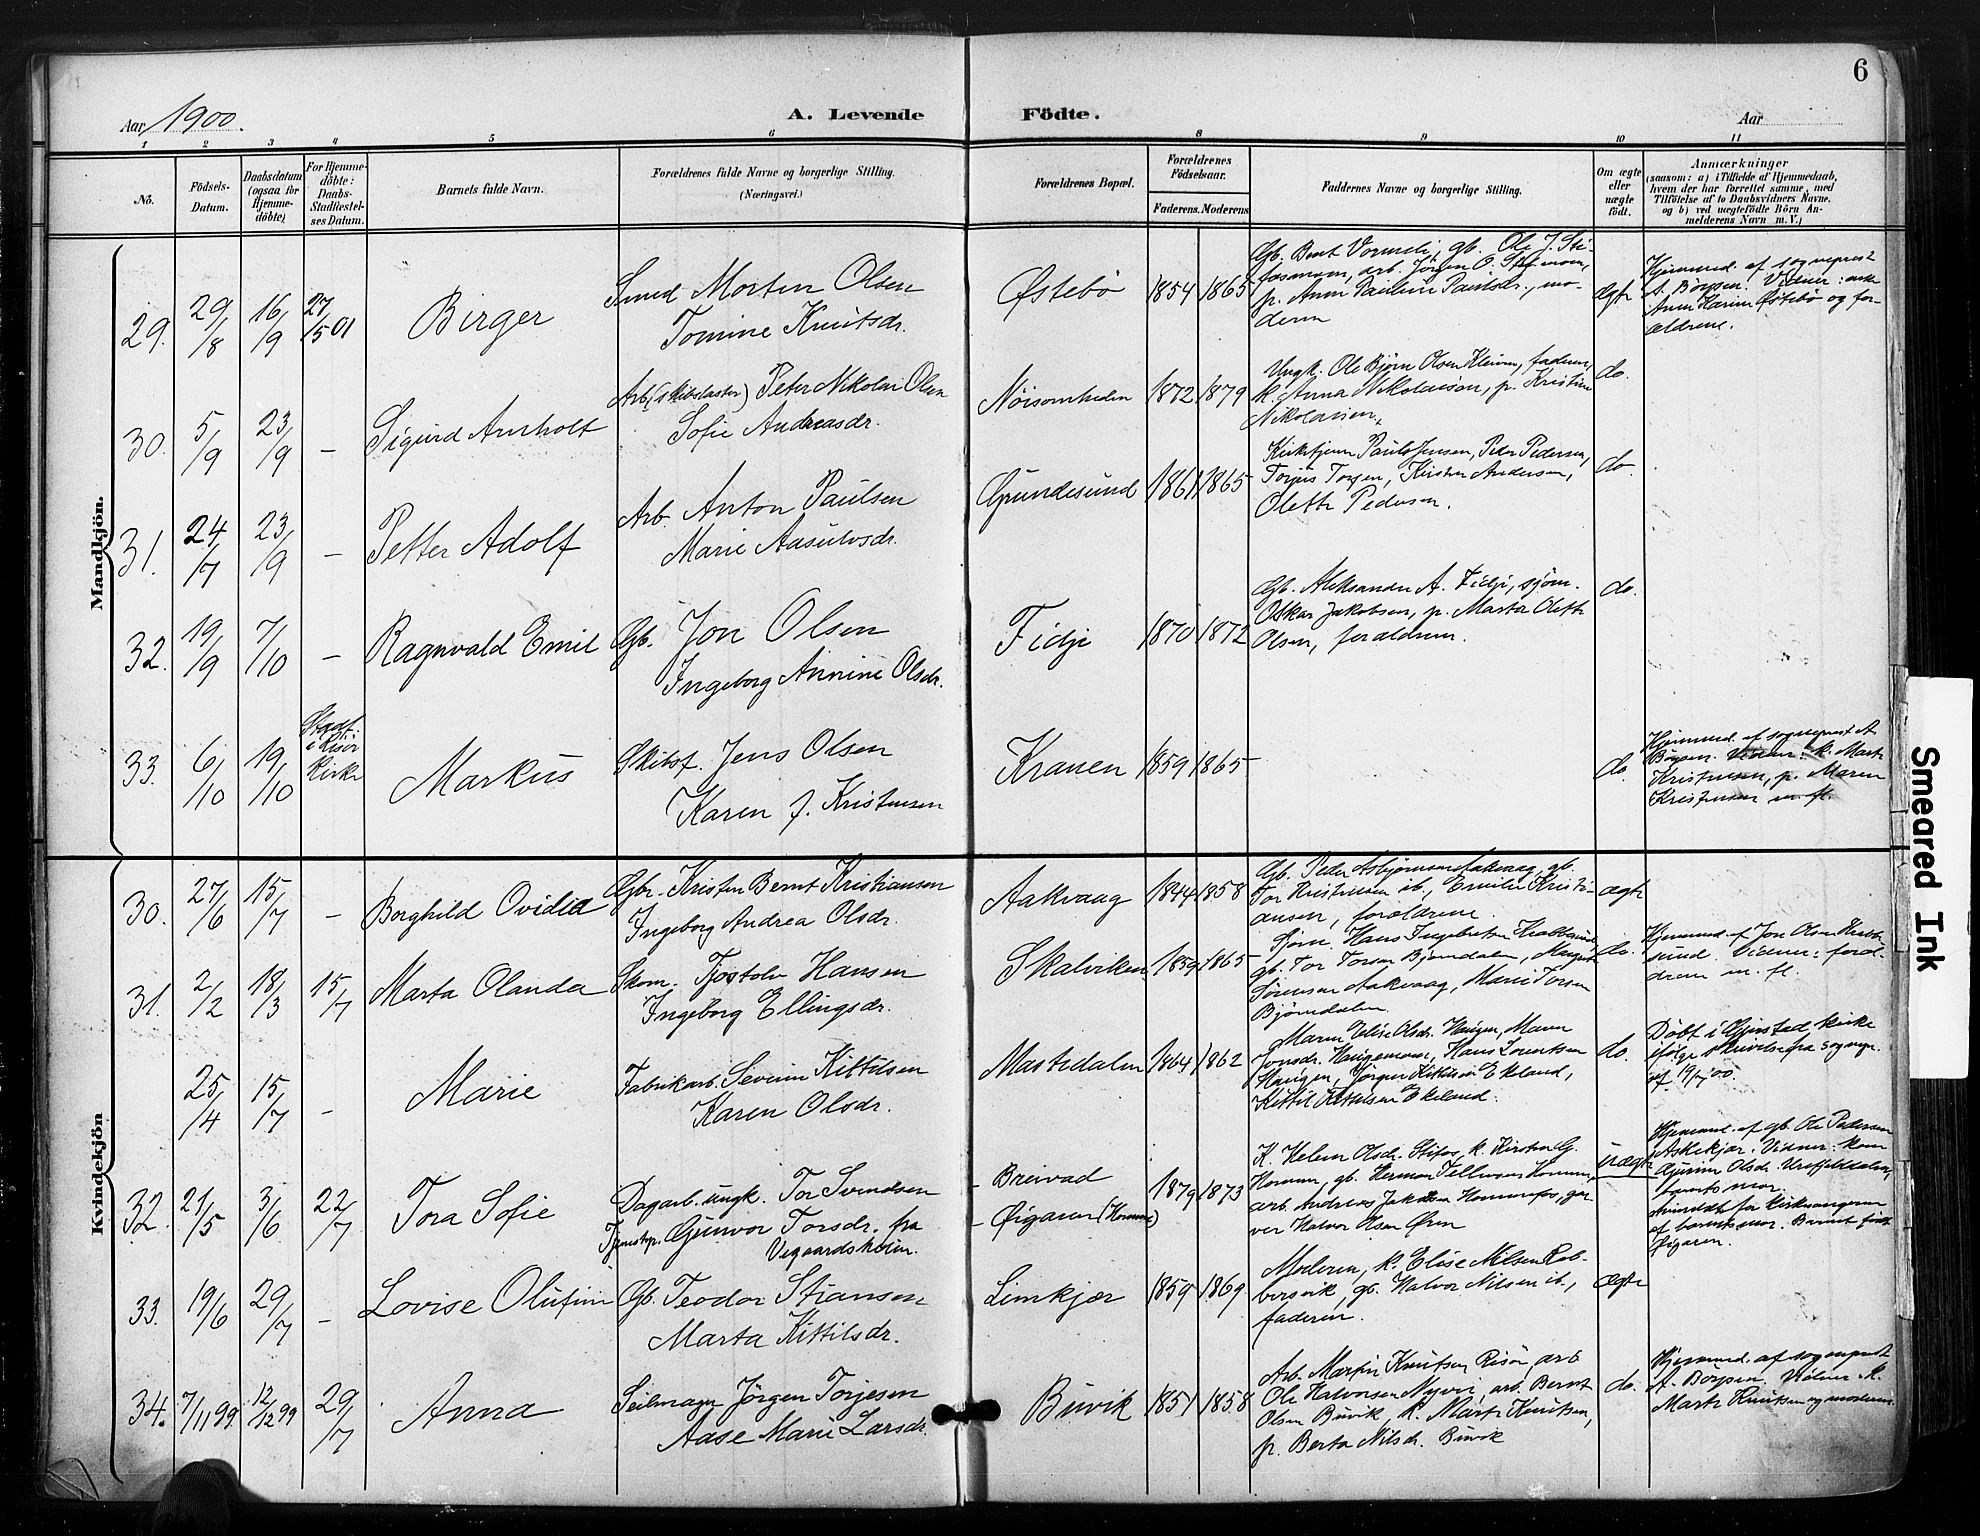 6
Aar 1900.
A. Levende Födte.
Aar
1 2 3 4 5 6 8 9 10 11
No.
Födsels-Datum.
Daabsdatum (ogsaa for Hjemme-döbte)
For Hjemme-döbte: Daabs-Stadfæstel-ses Datum.
Barnets fulde Navn.
Forældrenes fulde Navne og borgerlige Stilling.
(Næringsvei.)
Forældrenes Bopæl.
Forældrenes Födselsaar.
Faderens. Moderens
Faddernes Navne og borgerlige Stilling.
Om ægte eller uægte födt.
Anmærkninger
(saasom: a) i Tilfælde af Hjemmedaab, hvem der har forrettet samme, med Tilföielse af to Daabsvidners Navne, og b) ved uægtefödte Börn An-melderens Navn m. V.)
Mandkjön.
29. 29/8 16/9 27/5 01 Birger
Smed Morten Olsen
Tomine Knutsdr.
Østebö 1854 1865
Gb. Bent Vormeli, gb. Ole J. Sti-
fosmoen, arb. Jörgen O.
p. Anne Pauline Paulsdr., mo-
deren
ægte
Hjemmed. af sogneprest
A. Börsen. Vidner: enke
Anne Karine Østebö og for-
ældrene.
30. 5/9 23/9 - Sigurd Arnholt
Arb. (skibslaster) Peter Nikolai Olsen
Sofie Andreasdr.
Nöisomheden 1872 1879
Ungk. Ole Björn Olsen Kleiven, faderen,
k. Anna Nikolaisen, p. Kristine
Nikolaisen.
do.
31. 24/7 23/9 - Petter Adolf
Arb. Anton Paulsen
Marie Aasulvsdr.
Grundesund 1861 1865
Kirketjener Paul Jensen, Peter Pedersen,
Torjus Torsen, Kirsten Andersen,
Olette Pedersen.
do
32. 19/9 7/10 - Ragnvald Emil
Gb. Jon Olsen
Ingeborg Annine Olsdr.
Fidje 1870 1872
Gb. Aleksander A. Fidje, sjöm.
Oskar Jakobsen, p. Marta Olette
Olsen, forældrene.
do.
33. 6/10 19/10 Stadf. i Risör Kirke Markus
Skibsf. Jens Olsen
Karen f. Kristensen
Kranen 1859 1865
do.
Hjemmed. af sogneprest A.
Börsen. Vidner: k. Marte
Kristensen, p. Maren
Kristensen m. fl.
Kvindekjön
30. 27/6 15/7 - Borghild Ovidia
Gbr. Kristen Bernt Kristiansen
Ingeborg Andrea Olsdr.
Aakvaag 1844 1858
Gb. Peder Asbjörnsen Aakvaag, gb.
Tor Kristensen ib., Emilie Kristi-
ansen, forældrene.
ægte
31. 2/2 18/3 15/7 Marta Olanda
Skom. Tjostolv Hansen
Ingeborg Ellingsdr.
Skalviken 1859 1865
Sjöm. Hans Ingebretsen Krabbesund,
gb. Tor Torsen Bjorndalen, Margit
Sörensen Aakvaag, Marie Torsen
Björndalen
do.
Hjemmed. af Jon Olsen
sund. Vidner: foræl-
drene m. fl.
25/4 15/7 - Marie
Fabrikarb. Severin Kittilsen
Karen Olsdr.
Mastedalen 1864 1862
Maren Elise Olsdr. Haugen, Maren
Jonsdr. Haugemoen, Hans Lorentsen
Haugen, Jörgen Kittilsen Ekeland,
Kittil Kittilsen Ekeland.
do.
Döbt i Gjerstad kirke
ifölge skrivelse fra sognepr.
af 19/7 00.
32. 21/5 3/6 22/7 Tora Sofie
Dagarb. ungk. Tor Svendsen
Tjenestep. Gunvor Torsdr. fra
Vegaardsheien.
- Breivad
- Øigaren (Homme) 1879 1873
K. Helene Olsdr. Stifos, k. Kirsten G.
Hommen, gb. Herman Tellevsen Hommen,
arb. Andreas Jakobsen Hommefos, gar-
ver Halvor Olsen Øren
uægte
Hjemmed. af gb. Ole Pedersen
Askekjær. Vidner: kone
Gunine Olsdr.
barnets mor.
Anmeldt for Kirkesangeren
af barnets mor. Barnet födt
Øigaren.
33. 19/6 29/7 - Lovise Olufine
Gb. Teodor Stiansen
Marta Kittilsdr.
Limkjær 1859 1869
Moderen, k. Elise Nilsen Rob-
bersvik, gb. Halvor Nilsen ib.,
faderen.
ægte
34. 7/11 99 12/12 99 29/7 Anna
Seilmager Jörgen Torjesen
Aase Marie Larsdr.
Buvik 1851 1858
Arb. Martin Knutsen Risör, arb.
Ole Halvorsen Myrvi, arb. Bernt
Olsen Buvik, k. Marte Knutsen,
p. Berta Nilsdr. Buvik
do.
Hjemmed. af sogneprest
A. Börsen. Vidner k.
Marte Knutsen og moderen.
Smeared Ink